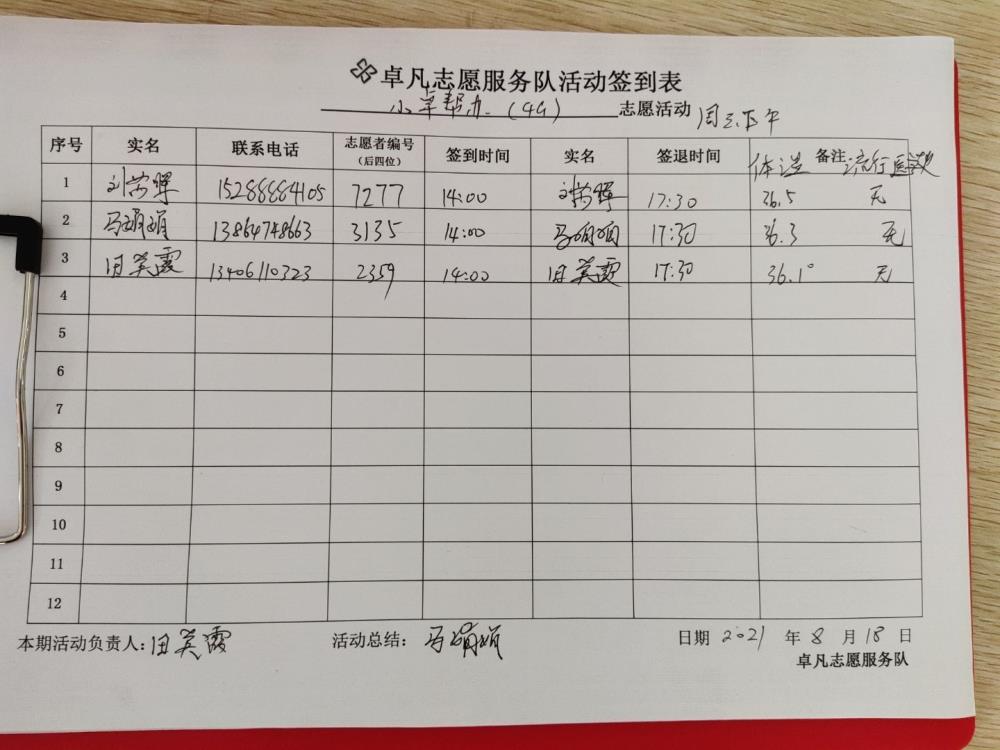 卓凡志愿服务队活动签到表
小卓帮办(4G) 志愿活动 周三下午
序号 实名 联系电话 志愿者编号(后四位) 签到时间 实名 签退时间 备注 体温 流行医学史
1 15288884105 7277 14:00 17:30 36.5 无
2 马娟娟 13864748663 3135 14:00 马娟娟 17:30 36.3 无
3 田英霞 13406110323 2359 14:00 田英霞 17:30 36.1° 无
4
5
6
7
8
9
10
11
12
本期活动负责人:田英霞 活动总结:马娟娟 日期 2021 年 8 月 18 日
卓凡志愿服务队